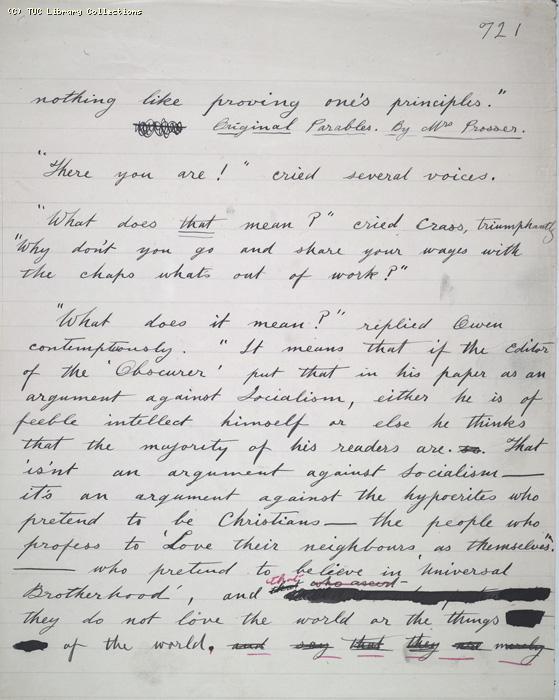 (c) TUC Library Collections
721
nothing like proving one's principles."
Original Parables. By Mrs Prosser.
"There you are!" cried several voices.
"What does that mean?" cried Crass, triumphantly
"Why don't you go and share your wages with
the chaps whats out of work?"
"What does it mean?" replied Owen
contemptuously. "It means that if the Editor
of the 'Obscurer' put that in his paper as an
argument against Socialism, either he is of
feeble intellect himself or else he thinks
that the majority of his readers are. so. That
'isn't an argument against Socialism—
it's an argument against the hypocrites who
pretend to be Christians— the people who
profess to 'Love their neighbours as themselves".
— who pretend to believe in Universal
that who assert
Brotherhood', and
they do not love the world or the things
of the world. and say that they are merely